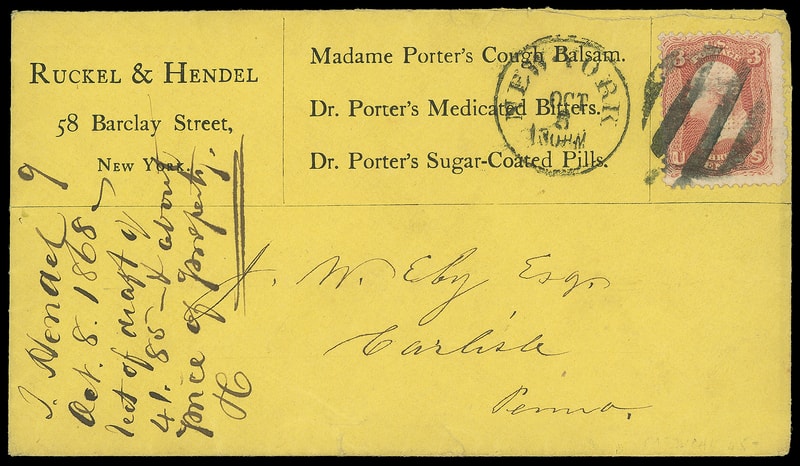 RUCKEL & HENDEL
58 Barclay Street,
NEW YORK.
Madame Porter's Cough Balsam.
Dr. Porter's Medicated Bitters.
Dr. Porter's Sugar-Coated Pills.
NEW YORK
OCT
8
130PM
3 3
U S
J. W. Eby Esq.
Carlisle
Penna.
J. Hendel 9
Oct. 8. 1868
rect of draft of
41.85 & about
price of property.
H